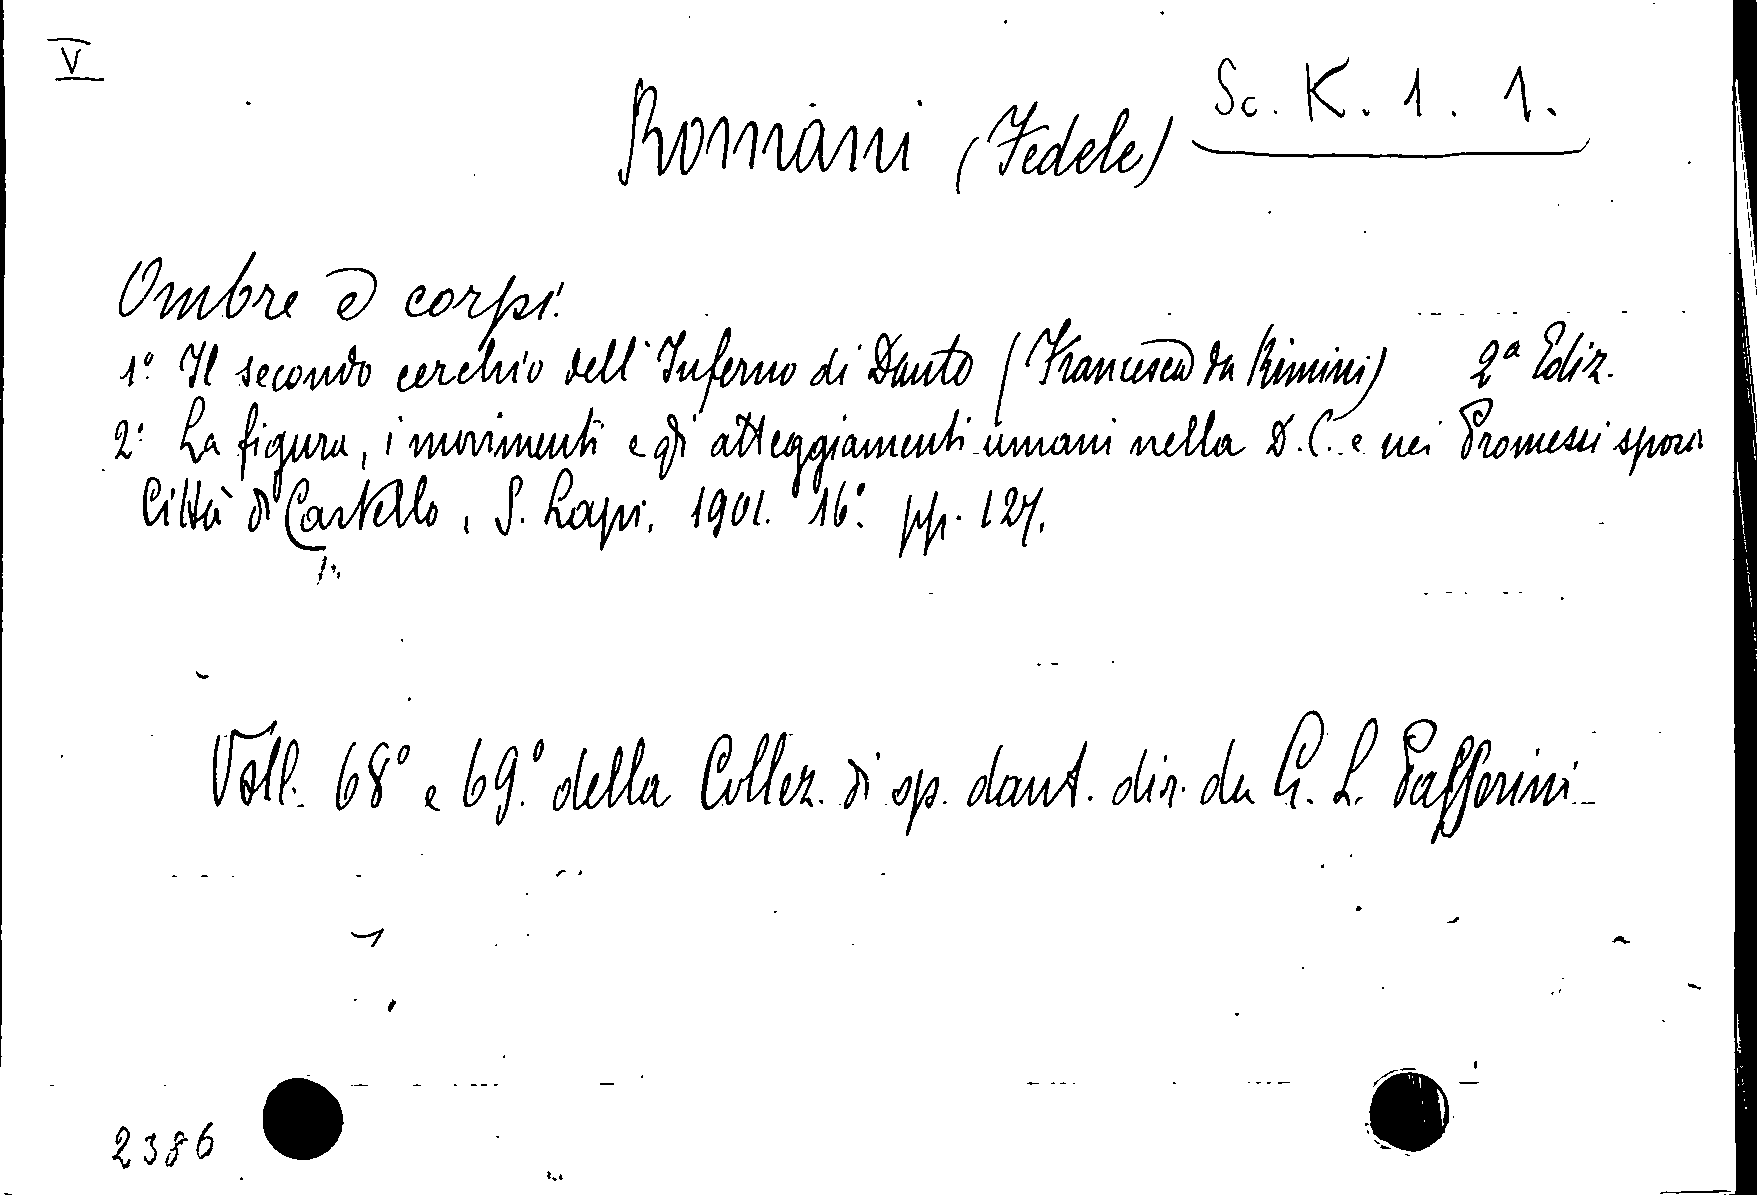 V
Sc. K. 1. 1.
Romani (Fedele)
Ombre e corpi.
1° Il secondo cerchio dell'Inferno di Dante (Francesca da Rimini) 2ª Ediz.
2° La figura, i movimenti e gli atteggiamenti umani nella D. C. e nei Promessi sposi
Città di Castello, S. Lapi, 1901. 16° pp. 127.
Voll. 68° e 69° della Collez. di op. dant. dir. da G. L. Passerini
2386